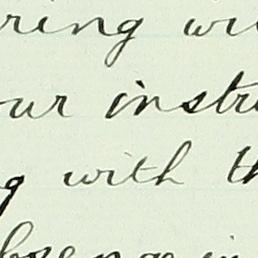 ring wi
our instru
g with th